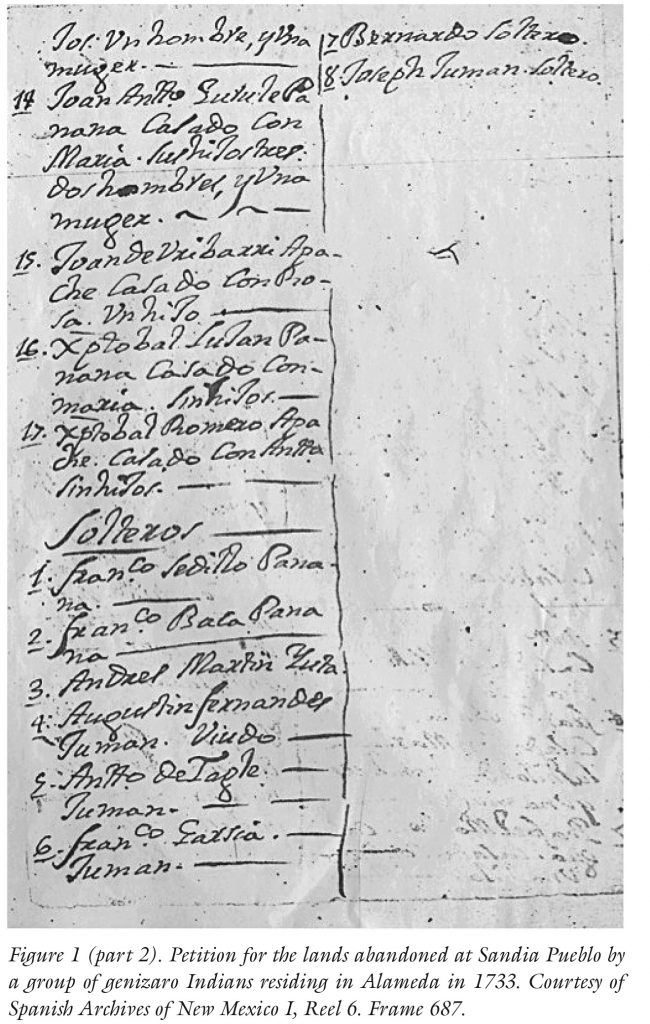 Jos. Vn hombre, y Vna
muger.
14 Joan Antto Gutule Pa
nana Casado Con
Maria. sus hijos tres.
dos hombres, y Vna
muger.
15. Joan de Vribarri Apa-
che Casado Con Ro-
sa. Vn hijo
16. Xptobal Lujan Pa-
nana Casado Con-
maria. sin hijos.
17. Xptobal Romero Apa
che. Casado Con Antta
sin hijos.
Solteros
1. fran.co Sedillo Pana-
na.
2. fran.co Baca Pana
na
3. Andres Martin Yuta
4. Augustin fernandes
Juman. Viudo
5. Antto de Tagle.
Juman.
6. fran.co Garsia.
Juman.
7 Bernardo Soltero
8. Joseph Juman. Soltero.
Figure 1 (part 2). Petition for the lands abandoned at Sandia Pueblo by
a group of genizaro Indians residing in Alameda in 1733. Courtesy of
Spanish Archives of New Mexico I, Reel 6. Frame 687.